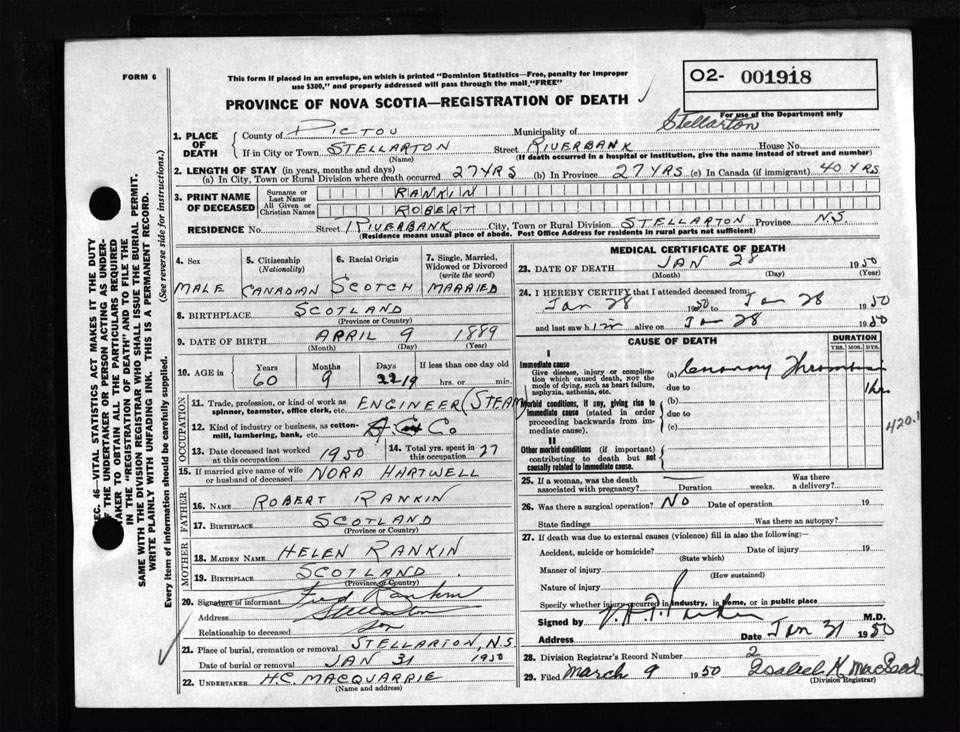 FORM 6
This form if placed in an envelope, on which is printed "Dominion Statistics—Free, penalty for improper
use $300," and properly addressed will pass through the mail "FREE"
O2- 001918
For use of the Department only
PROVINCE OF NOVA SCOTIA—REGISTRATION OF DEATH
1. PLACE OF DEATH
County of PICTOU Municipality of Stellarton
If in City or Town STELLARTON Street RIVERBANK House No.
(Name) (If death occurred in a hospital or institution, give the name instead of street and number)
2. LENGTH OF STAY (in years, months and days)
(a) In City, Town or Rural Division where death occurred 27 YRS (b) In Province 27 YRS (c) In Canada (if immigrant) 40 YRS.
3. PRINT NAME OF DECEASED
Surname or Last Name RANKIN
All Given or Christian Names ROBERT
RESIDENCE No. Street RIVERBANK City, Town or Rural Division STELLARTON Province N.S
(Residence means usual place of abode. Post Office Address for residents in rural parts not sufficient)
4. Sex 5. Citizenship (Nationality) 6. Racial Origin 7. Single, Married, Widowed or Divorced (write the word)
MALE CANADIAN SCOTCH MARRIED
8. BIRTHPLACE SCOTLAND
(Province or Country)
9. DATE OF BIRTH APRIL 9 1889
(Month) (Day) (Year)
10. AGE in Years Months Days If less than one day old
60 9 19 hrs. or min.
OCCUPATION
11. Trade, profession or kind of work as
spinner, teamster, office clerk, etc. ENGINEER (STEAM)
12. Kind of industry or business, as cotton-
mill, lumbering, bank, etc. Co
13. Date deceased last worked at this occupation 1950 14. Total yrs. spent in this occupation 27
15. If married give name of wife
or husband of deceased NORA HARTWELL
FATHER
16. NAME ROBERT RANKIN
17. BIRTHPLACE SCOTLAND
(Province or Country)
MOTHER
18. MAIDEN NAME HELEN RANKIN
19. BIRTHPLACE SCOTLAND
(Province or Country)
20. Signature of informant Fred Rankin
Address Stellarton
Relationship to deceased son
21. Place of burial, cremation or removal STELLARTON, N.S.
Date of burial or removal JAN 31 1950
22. UNDERTAKER H.C. MACQUARRIE
(Name and address)
MEDICAL CERTIFICATE OF DEATH
23. DATE OF DEATH JAN 28 1950
(Month) (Day) (Year)
24. I HEREBY CERTIFY that I attended deceased from:
Jan 28 1950 to Jan 28 1950
and last saw him alive on Jan 28 1950
CAUSE OF DEATH
DURATION
YRS. MOS. DYS.
I
Immediate cause
Give disease, injury or complica-
tion which caused death, NOT the
mode of dying, such as heart failure,
asphyxia, asthenia, etc.
(a) Coronary Thrombosis
due to 1 hr
Morbid conditions, if any, giving rise to
immediate cause (stated in order
proceeding backwards from im-
mediate cause).
(b)
due to
(c)
420.1
II
Other morbid conditions (if important)
contributing to death but not
causally related to immediate cause.
25. If a woman, was the death
associated with pregnancy? Duration weeks. Was there
a delivery?
26. Was there a surgical operation? NO Date of operation 19
State findings Was there an autopsy?
27. If death was due to external causes (violence) fill in also the following:
Accident, suicide or homicide? Date of injury 19
(State which)
Manner of injury
(How sustained)
Nature of injury
Specify whether injury occurred in industry, in home, or in public place
Signed by M.D.
Address Date Jan 31 1950
28. Division Registrar's Record Number 2
29. Filed March 9 1950 Isabel K. MacLeod
(Division Registrar)
SEC. 46—VITAL STATISTICS ACT MAKES IT THE DUTY
OF THE UNDERTAKER OR PERSON ACTING AS UNDER-
TAKER TO OBTAIN ALL THE PARTICULARS REQUIRED
IN THE "REGISTRATION OF DEATH" AND TO FILE THE
SAME WITH THE DIVISION REGISTRAR WHO SHALL ISSUE THE BURIAL PERMIT.
WRITE PLAINLY WITH UNFADING INK. THIS IS A PERMANENT RECORD.
Every item of information should be carefully supplied. (See reverse side for instructions.)